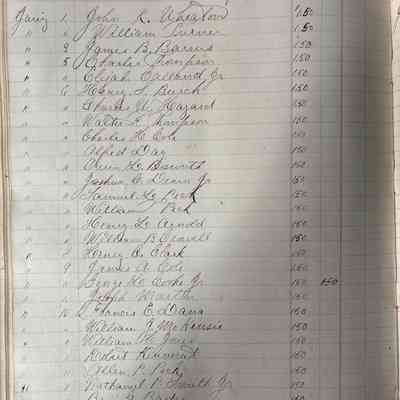 Jany 1 John R. Wheaton 1.50
" " William Turner 1.50
" 2 James B. Barnes 150
" 5 Charles Thompson 150
" " Elijah Jr 150
" 6 Henry S. Burch 150
" " Thomas W. Hazard 150
" " Walter E. Thompson 150
" " Charles H. Cole 150
" " Alfred Day 150
" " Owen L. Bosworth 150
" " Joshua C. Drown Jr 150
" " Samuel L. Peck 150
" " William Peck 150
" " Henry L. Arnold 150
" " William B. 150
" " Henry C. Clark 150
" 9 James A. Cole 150
" " George H. Jr 150 150
" " Joseph Martin 150
" 10 Francis E. Dana 150
" " William J. McKensie 150
" " William H. Jones 150
" " Robert 150
" " P. Peck 150
" 11 Nathaniel P. Smith Jr 150
150